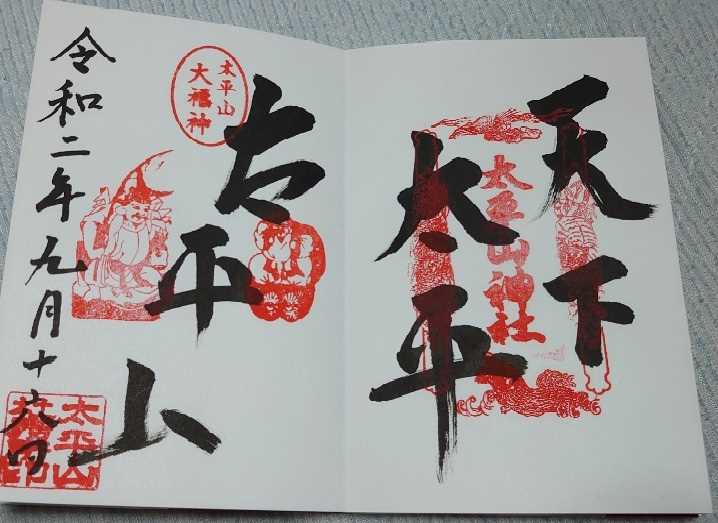 天下
太平
太平山神社
太平山
大福神
太平山
令和二年九月十六日
太平山